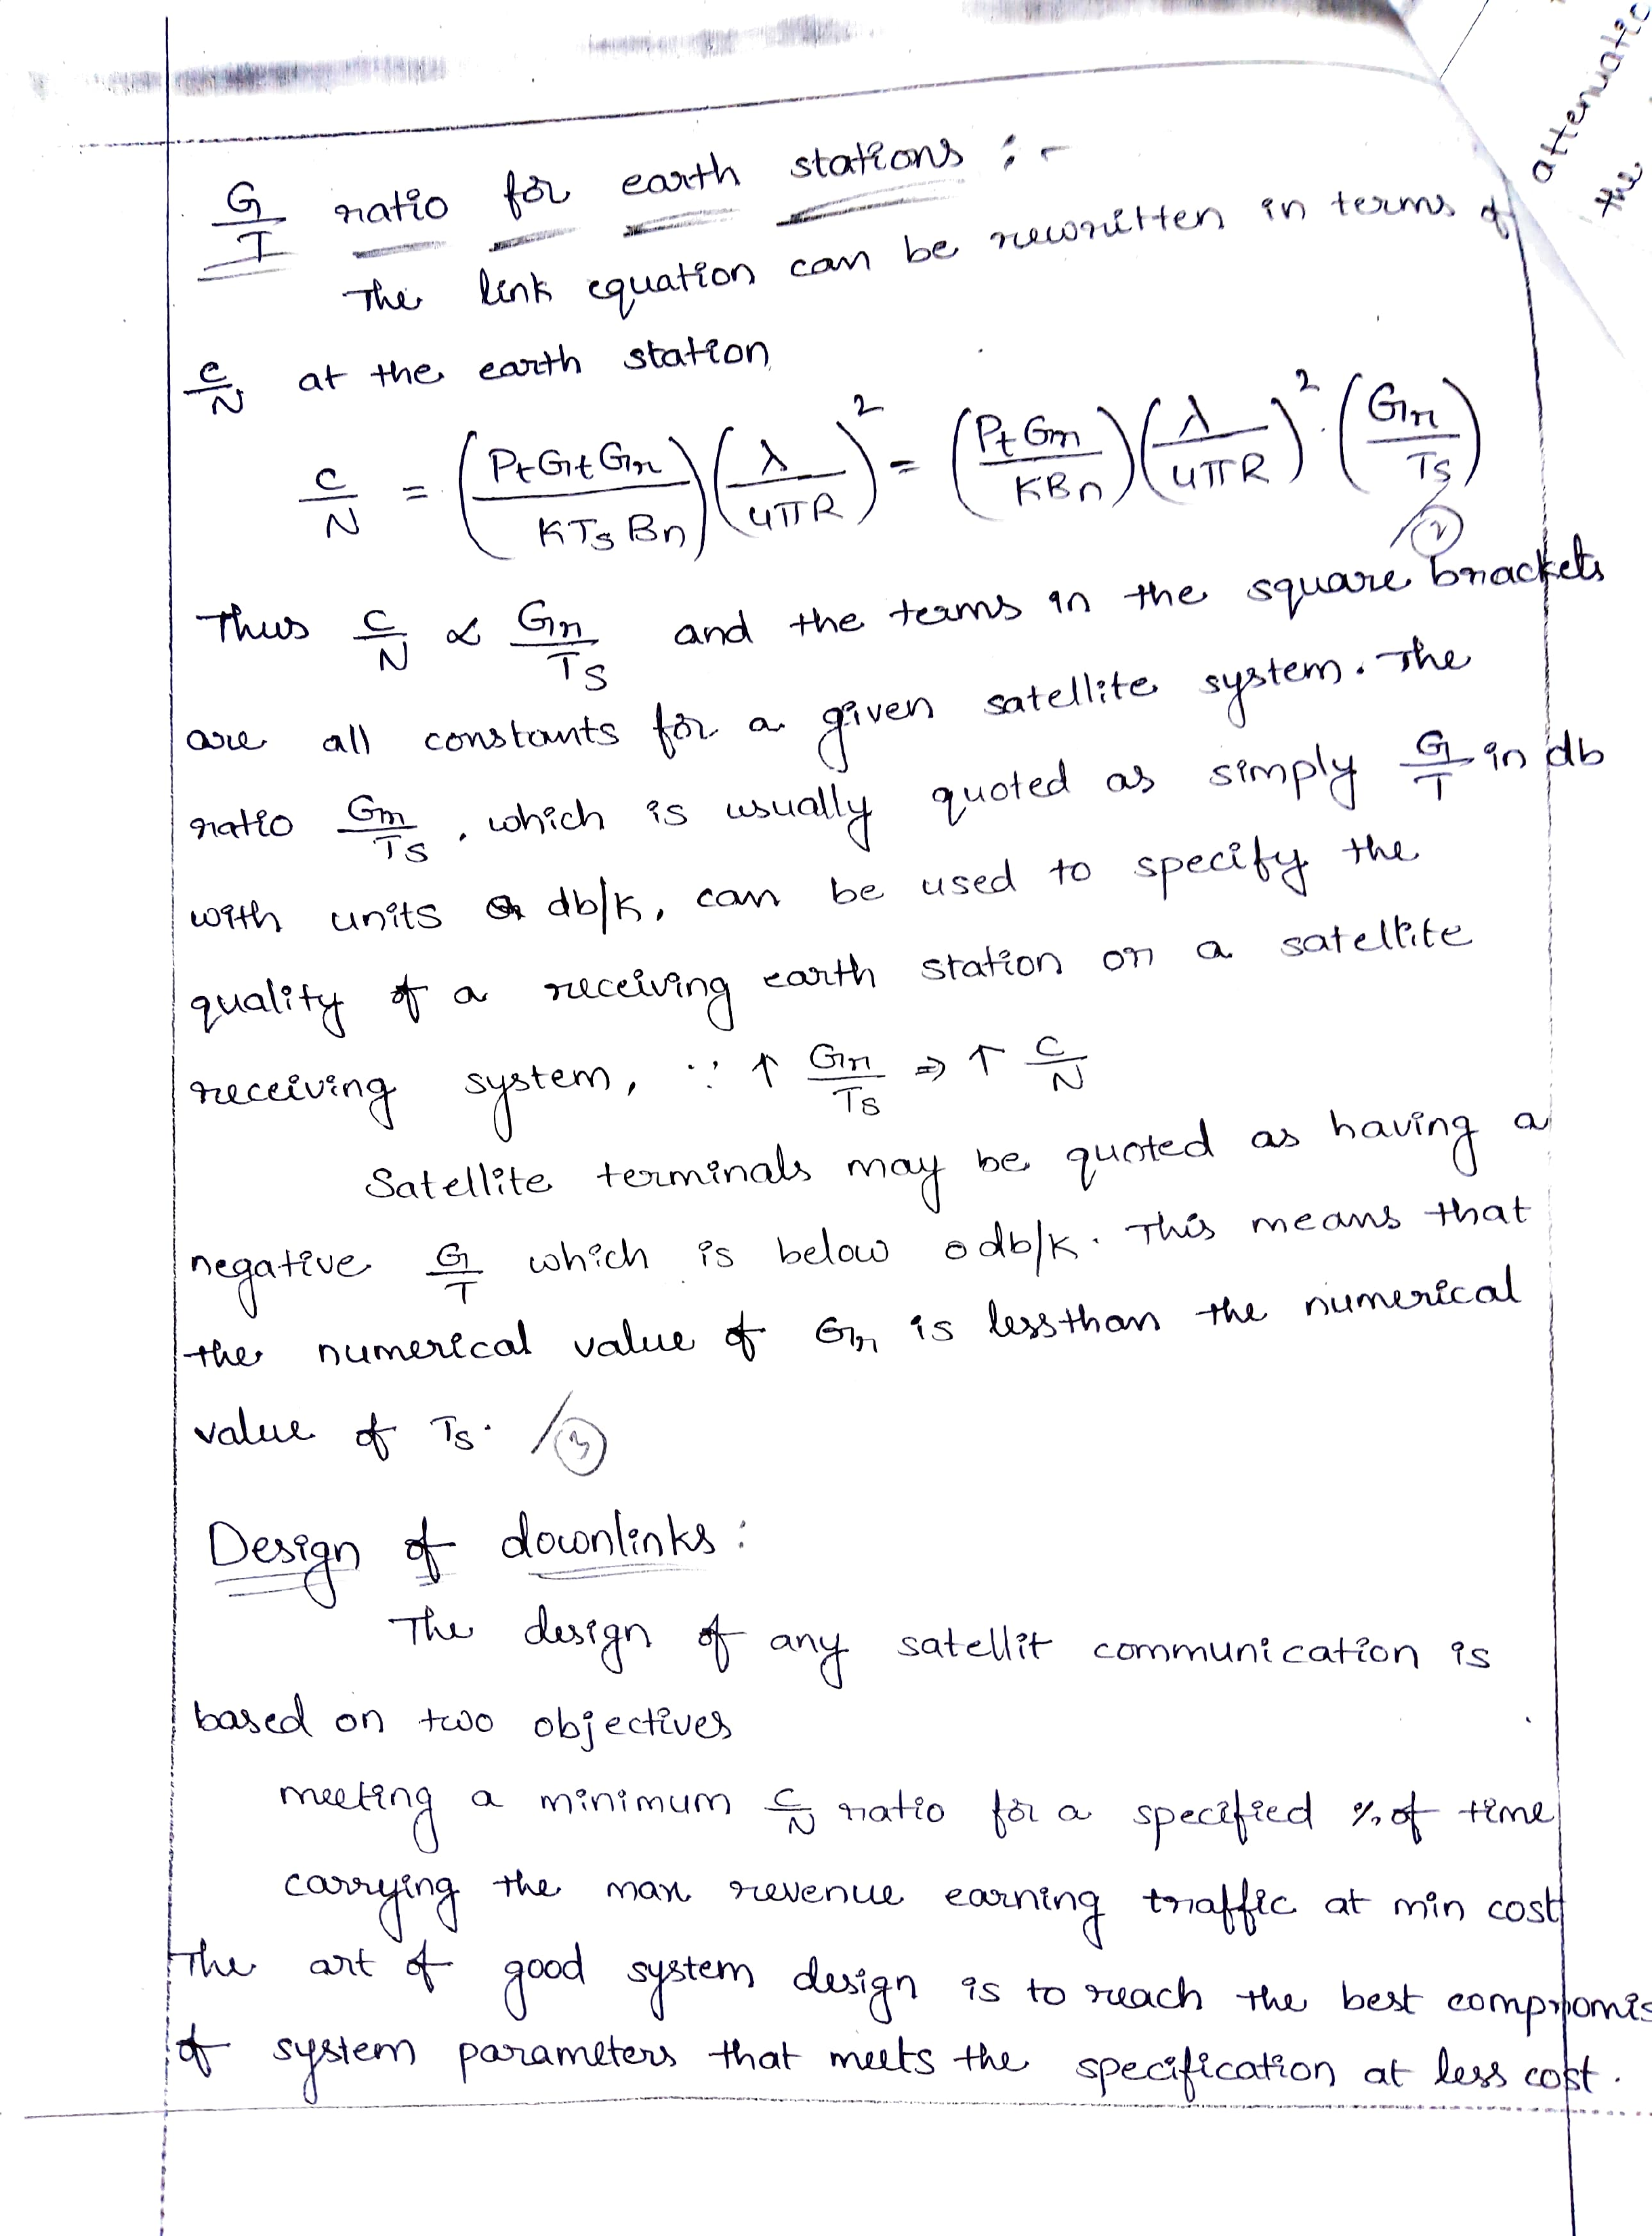 G/T ratio for earth stations :-
The link equation can be rewritten in terms of
C/N at the earth station
C/N = (PtGtGr / KTsBn) (λ / 4πR)² = (PtGr / KBn) (λ / 4πR)² . (Gr / Ts)
2
Thus C/N ∝ Gr/Ts and the terms in the square brackets
are all constants for a given satellite system. The
ratio Gr/Ts, which is usually quoted as simply G/T in db
with units db/k, can be used to specify the
quality of a receiving earth station or a satellite
receiving system, ∵ ↑ Gr/Ts ⇒ ↑ C/N
Satellite terminals may be quoted as having a
negative G/T which is below 0 db/k. This means that
the numerical value of Gr is lessthan the numerical
value of Ts. 3
Design of downlinks :
The design of any satellit communication is
based on two objectives
meeting a minimum C/N ratio for a specified % of time
carrying the max revenue earning traffic at min cost
The art of good system design is to reach the best compromis
of system parameters that meets the specification at less cost.
attenuatio
the